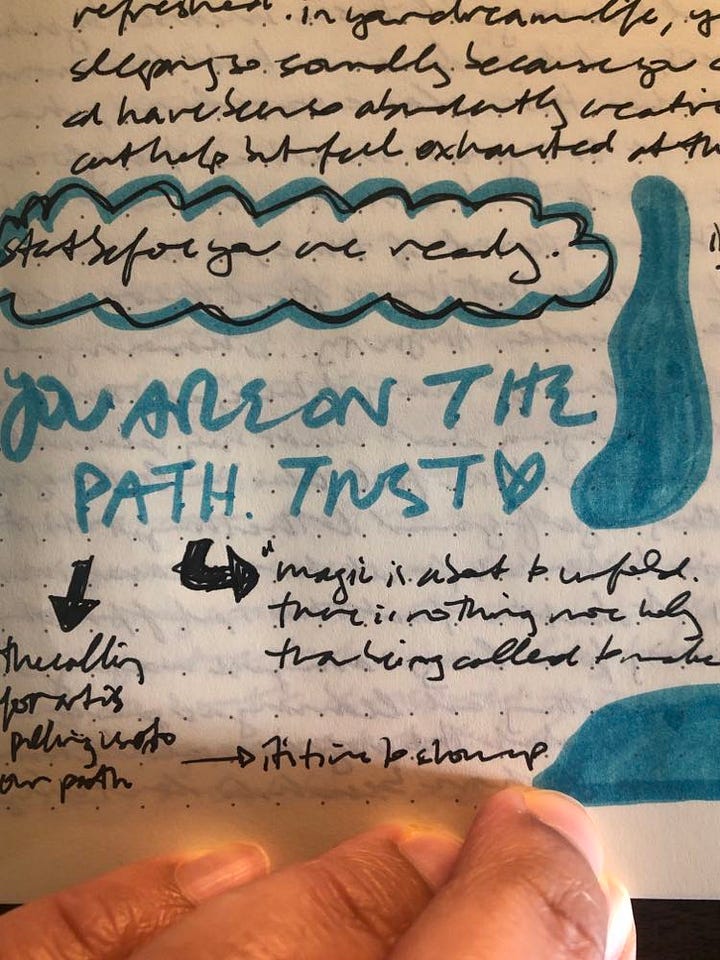 refreshed. in your dream life, y
sleeping so soundly because you
d have been so abundantly creativ
cant help but feel exhausted at th
start before you are ready.
YOU ARE ON THE
PATH. TRUST
"magic is about to unfold.
there is nothing more holy
than being called to make
the calling
for artists
pulling us to
our path
it is time to show up.